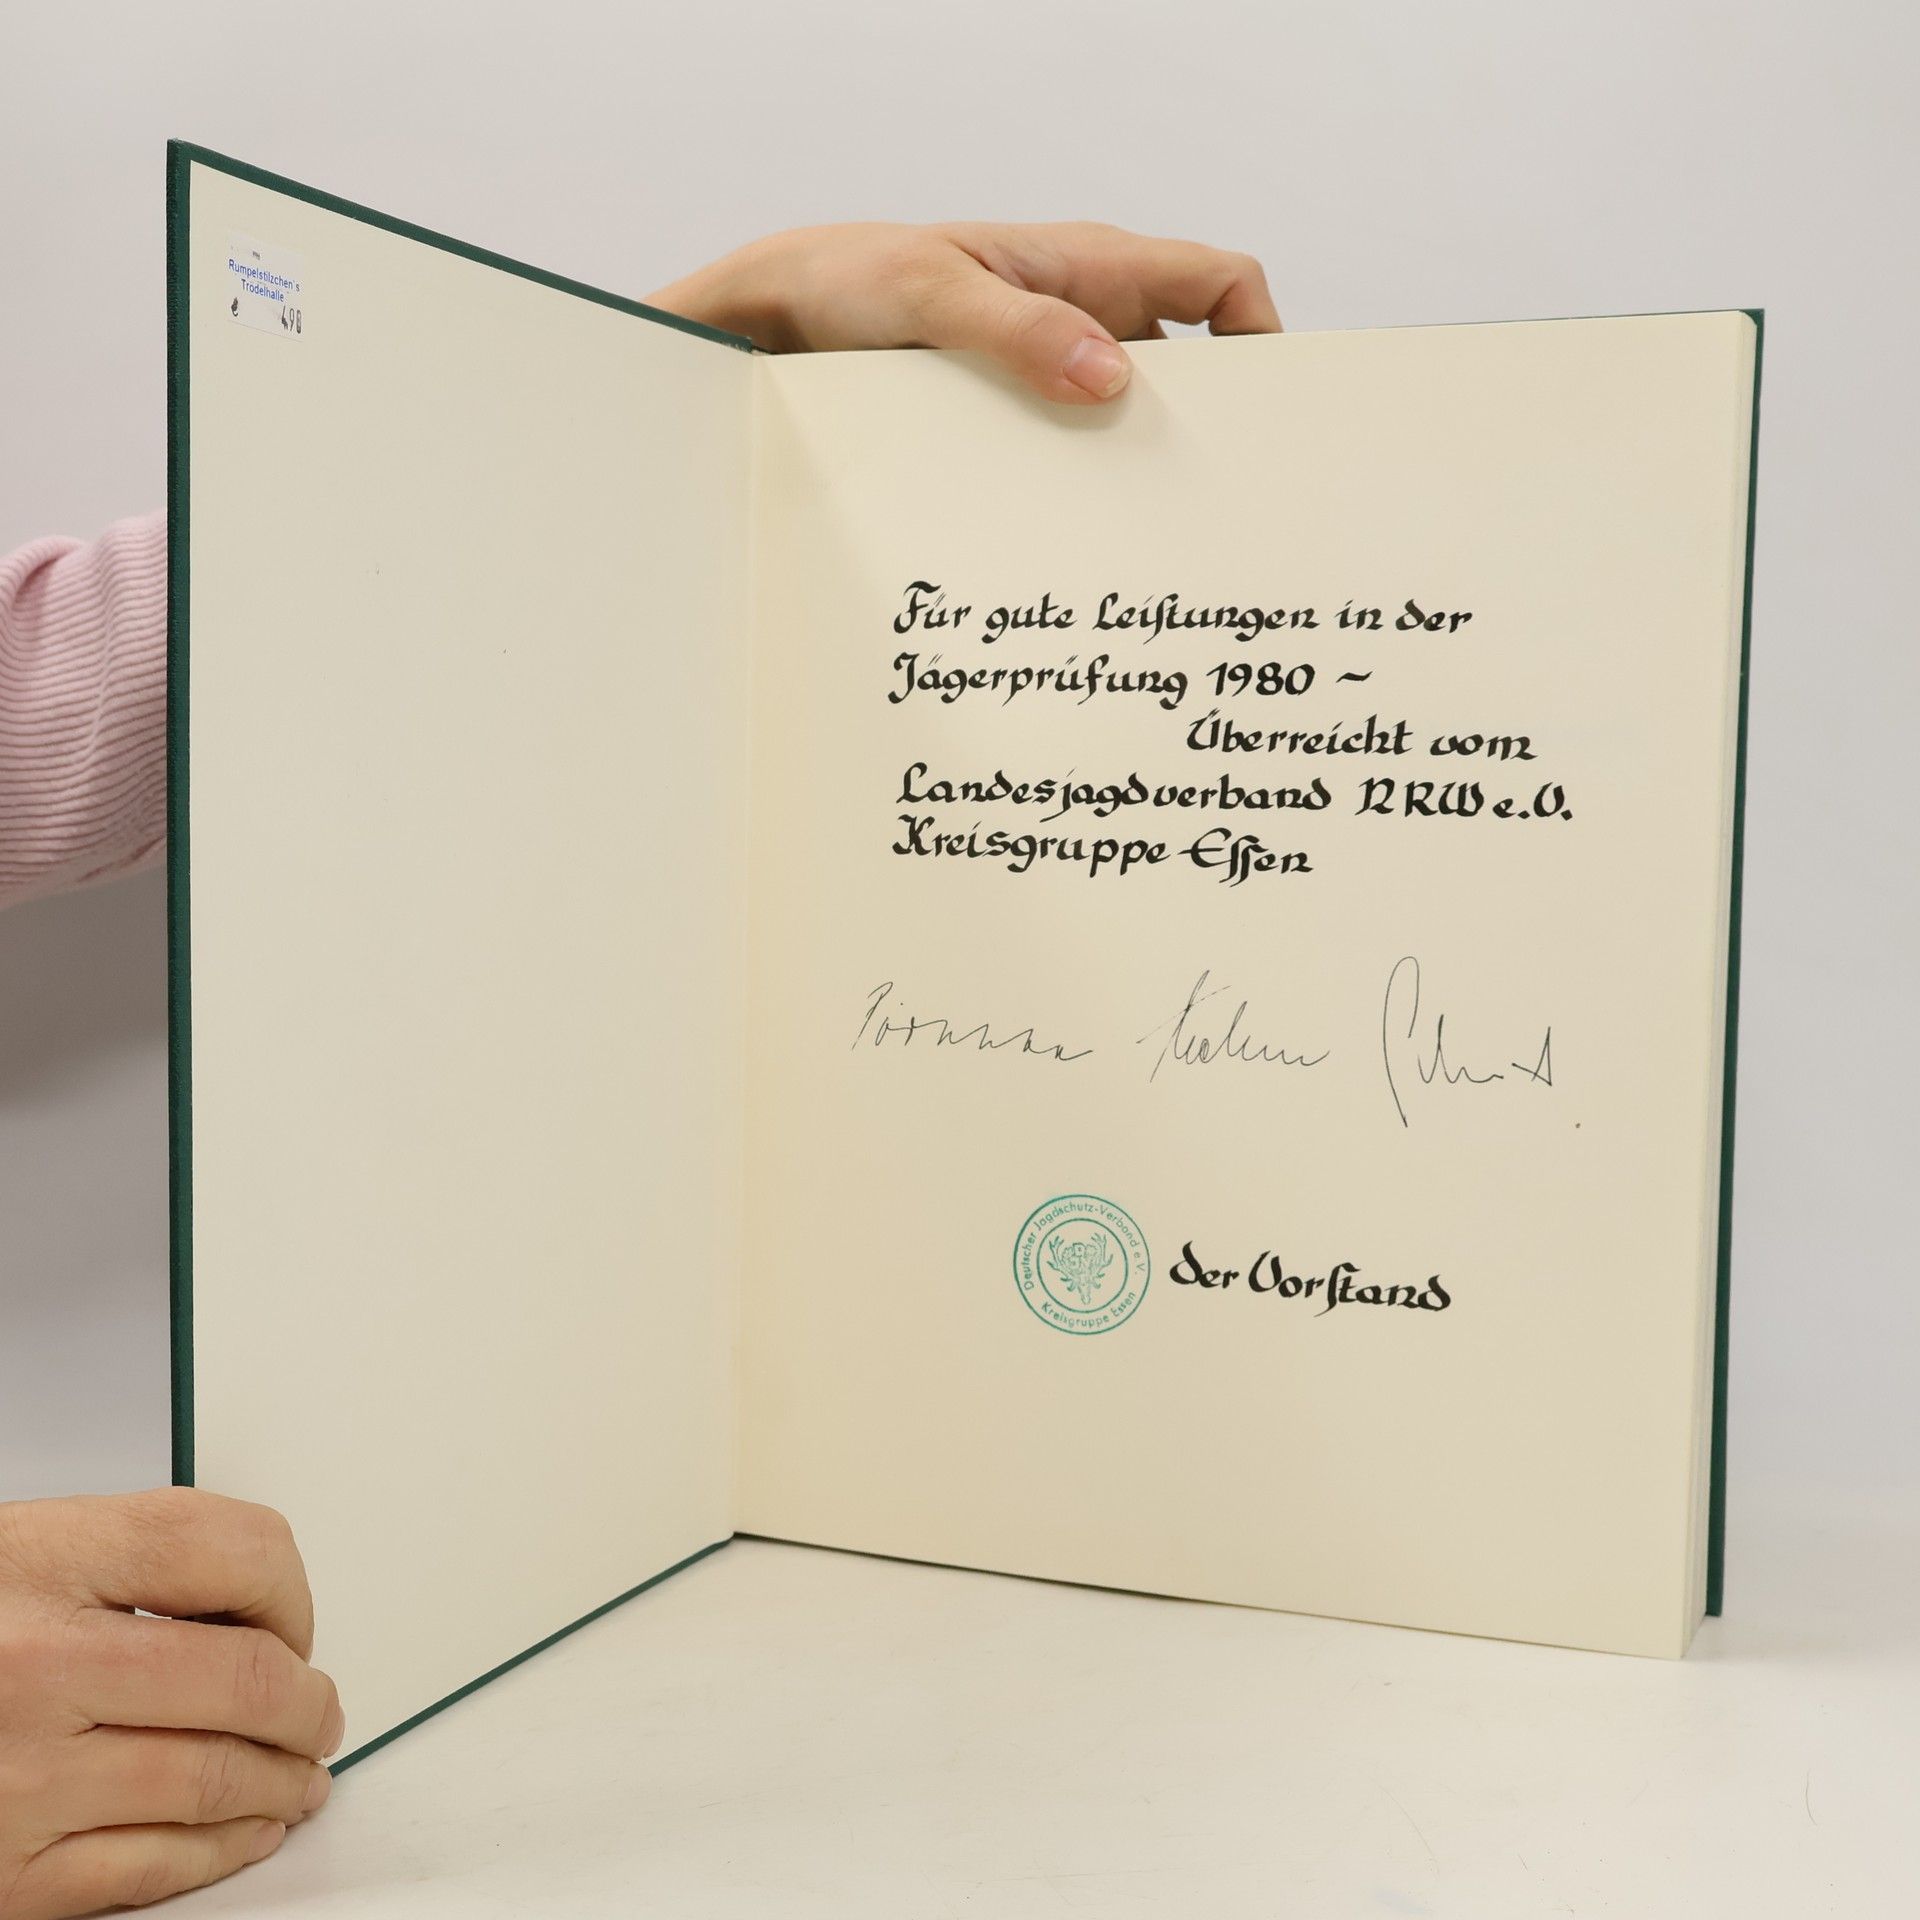 Rumpelstilzchen's
Trödelhalle
Für gute Leistungen in der
Jägerprüfung 1980 ~
Überreicht vom
Landesjagdverband NRW e.V.
Kreisgruppe Essen
Deutscher Jagdschutz-Verband e.V.
Kreisgruppe Essen
der Vorstand